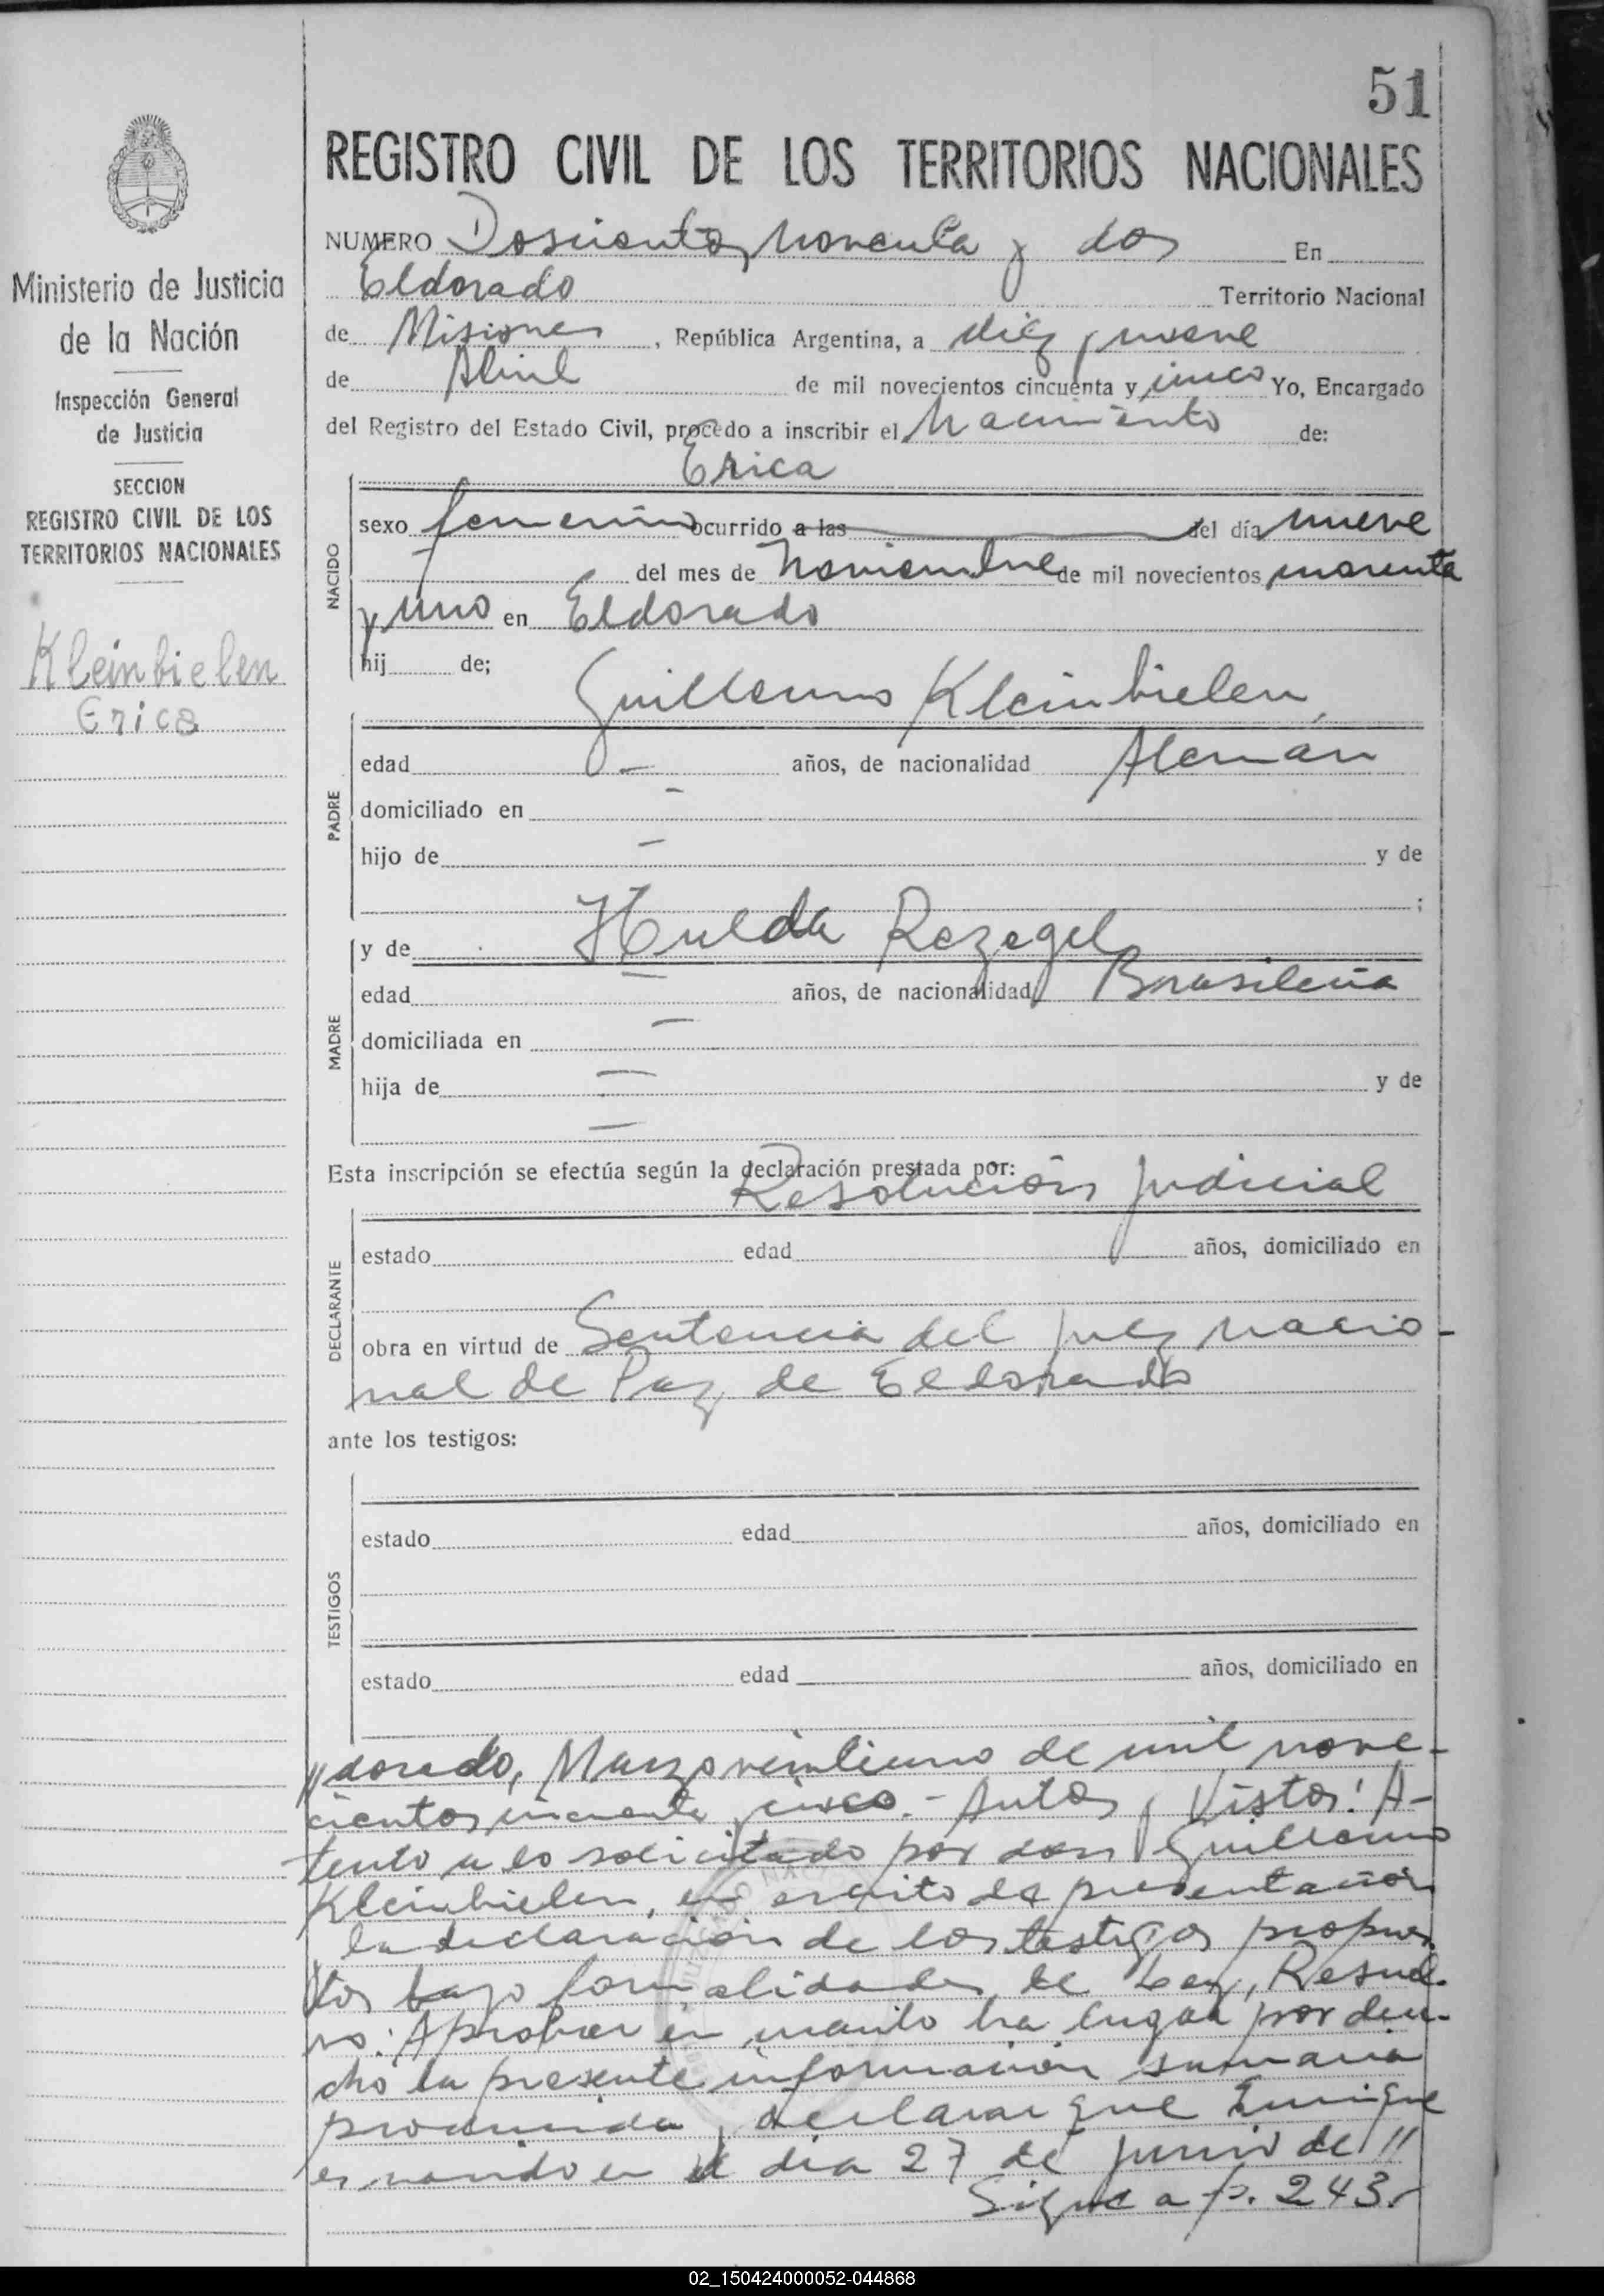 51
REGISTRO CIVIL DE LOS TERRITORIOS NACIONALES
NUMERO Doscientos noventa y dos En
Eldorado Territorio Nacional
de Misiones, República Argentina, a diez y nueve
de Abril de mil novecientos cincuenta y cinco Yo, Encargado
del Registro del Estado Civil, procedo a inscribir el Nacimiento de:
Erica
NACIDO
sexo femenino ocurrido a las del día nueve
del mes de Noviembre de mil novecientos cuarenta
y uno en Eldorado
hij de;
Guillermo Kleinbielen,
PADRE
edad — años, de nacionalidad Alemán
domiciliado en —
hijo de — y de
;
MADRE
y de Hulda Rezegel
edad — años, de nacionalidad Brasileña
domiciliada en —
hija de — y de
—
Esta inscripción se efectúa según la declaración prestada por:
Resolución Judicial
DECLARANTE
estado edad años, domiciliado en
obra en virtud de Sentencia del Juez nacio-
nal de Paz de Eldorado
ante los testigos:
TESTIGOS
estado edad años, domiciliado en
estado edad años, domiciliado en
//dorado, Marzo veintiuno de mil nove-
cientos cincuenta y cinco.- Autos y Vistos: A-
tento a lo solicitado por don Guillermo
Kleinbielen, en escrito de presentación
la declaración de los testigos propues
tos bajo formalidades de Ley, Resuel-
vo: Aprobar en cuanto ha lugar por dere-
cho la presente información sumaria
producida y declarar que Enrique
es nacido en el dia 27 de junio de //
Sigue a f. 243.
Ministerio de Justicia
de la Nación
Inspección General
de Justicia
SECCION
REGISTRO CIVIL DE LOS
TERRITORIOS NACIONALES
Kleinbielen
Erica
02_150424000052-044868